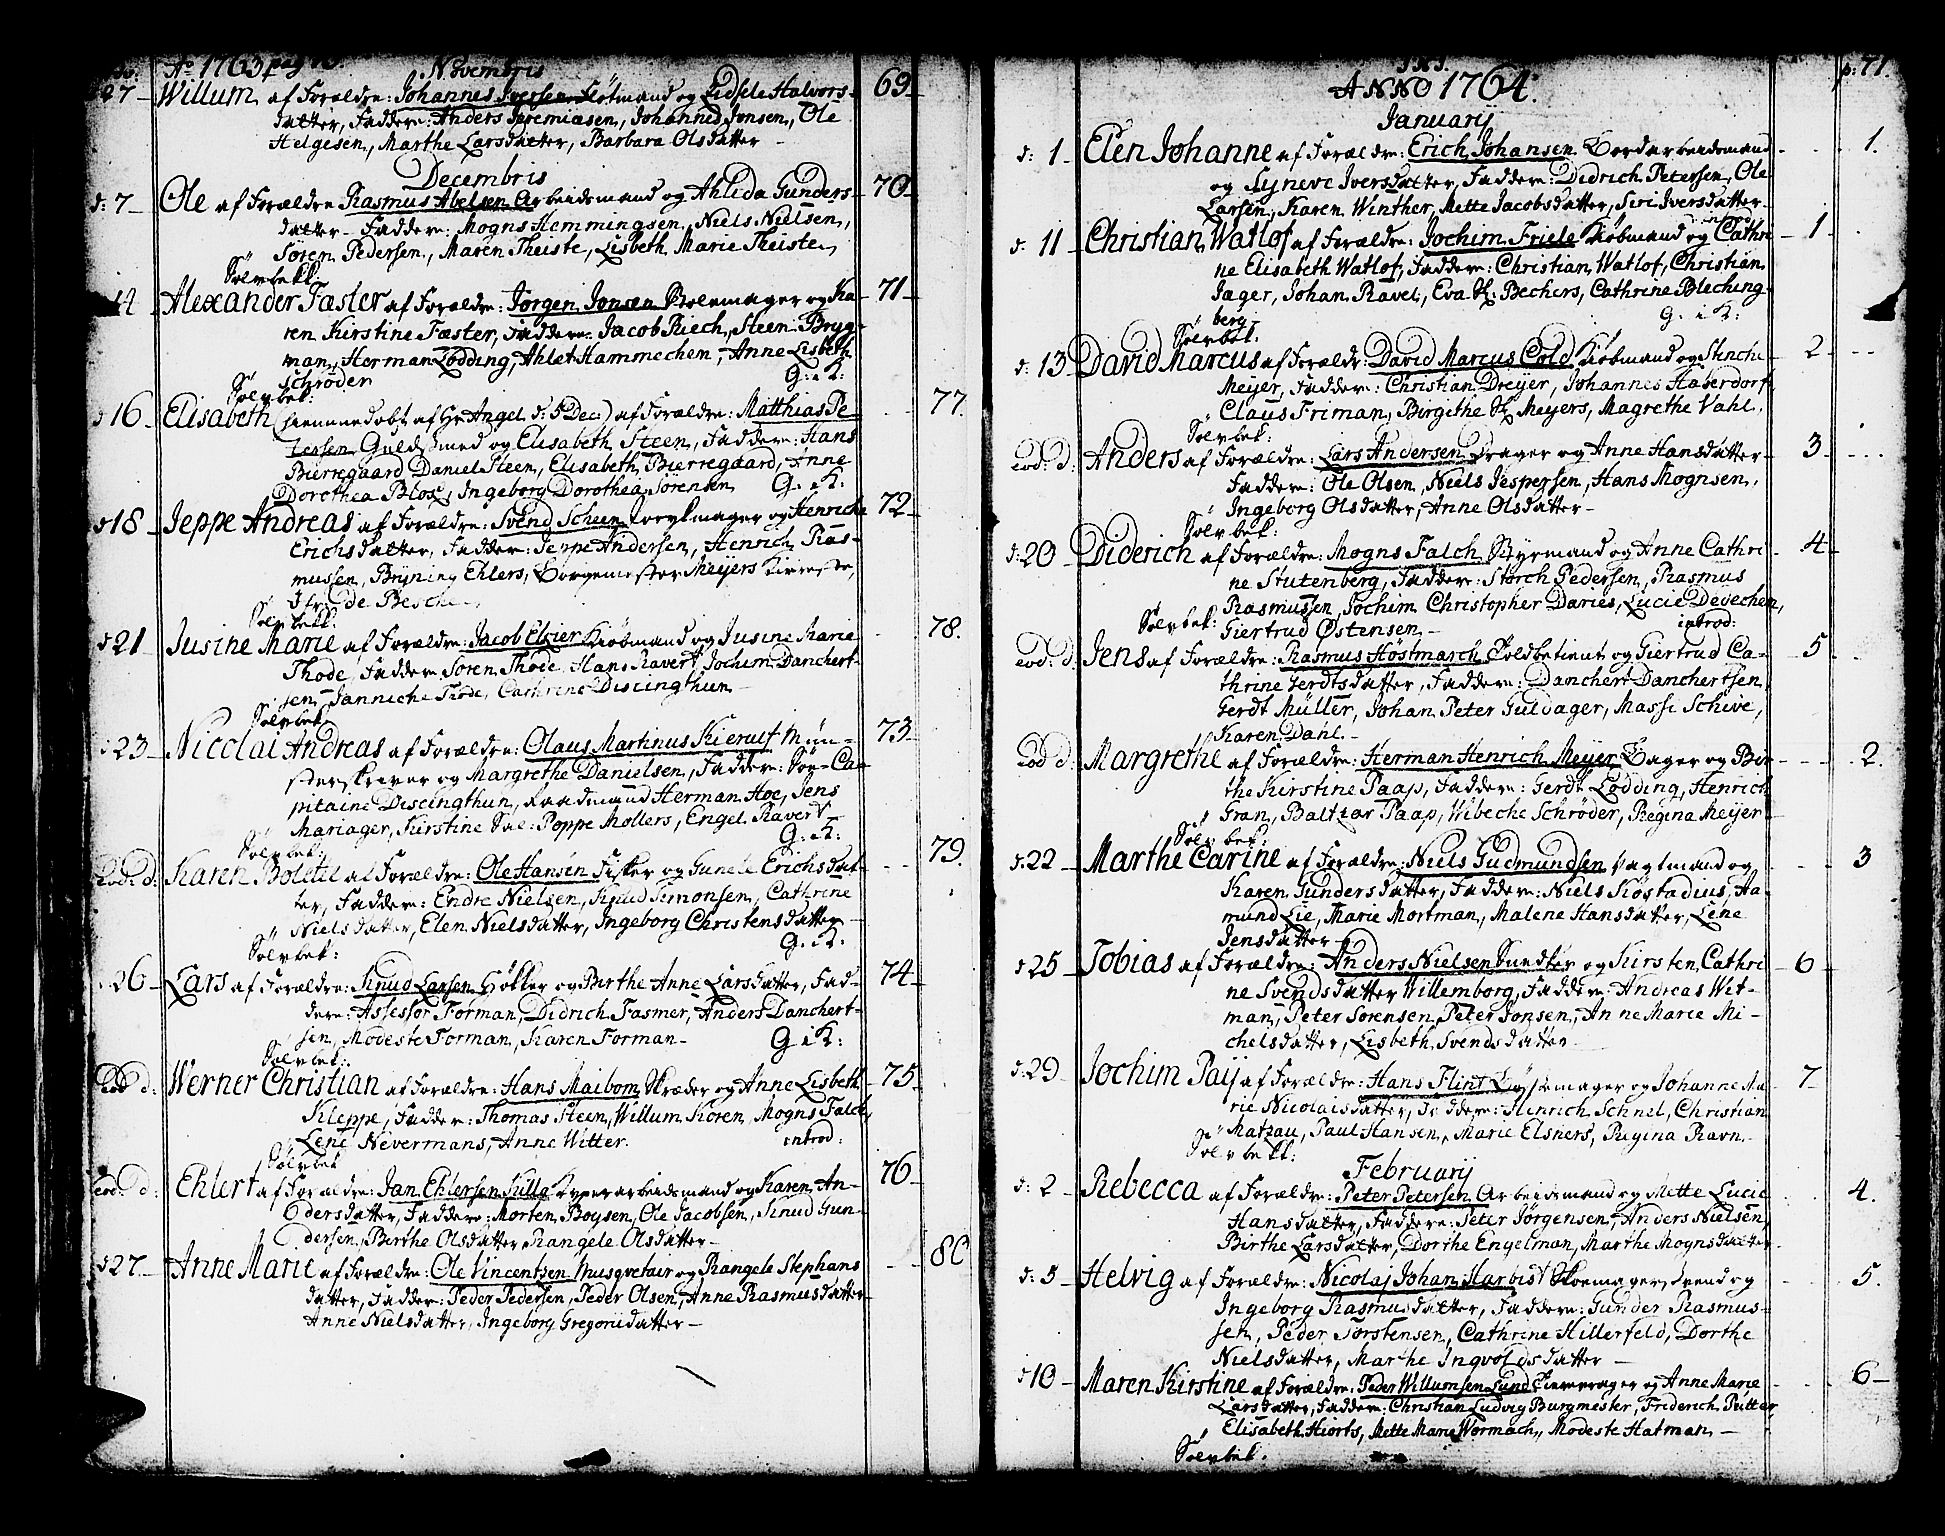 Ao 1763 pag
Novembris
27 Willum af Forældre: Johannes Iversen Fløtmand og Lidsele Halvors- 69
datter, Faddere: Anders Jeremiasen, Johannes Jonsen, Ole
Helgesen, Marthe Larsdatter, Barbara Olsdatter
Decembris
d: 7 Ole af Forældre Rasmus Abelsen Arbeidsmand og Ahlida Gunders- 70
datter Faddere: Mogns Hemmingsen, Niels Nielsen,
Søren Pedersen, Maren Theiste, Lisbeth Marie Theiste
Sølvbekk:
14 Alexander Faster af Forældre: Jørgen Jonsen Stolemager og Ka- 71
ren Kirstine Fæster, Faddere: Jacob Riech, Steen Bryg-
man, Herman Lødding, Ahlet Hammechen, Anne Lisbeth
Schrøder G: i K:
Sølvbek:
d 16 Elisabeth (hiemmedøbt af Hr Angel d: 5 Dec:) af Forældre: Matthias Pe- 77.
tersen Guldsmed og Elisabeth Steen, Faddere: Hans
Bierregaard, Daniel Steen, Elisabeth Bierregaard, Anne
Dorothea Blox, Ingeborg Dorothea Sørensen G: i K:
d 18 Jeppe Andreas af Forældre: Svend Scheen og Henriche 72
Erichsdatter, Faddere: Jeppe Andersen, Henrich Ras-
mussen, Bryning Ehlers, Borgemester Meyers Kiereste,
de Besche
Sølvbekk:
d 21 Jusine Marie af Forældre: Jacob Elsier Kiøbmand og Jusine Marie 78.
Thode, Faddere Søren Thode, Hans Ravert, Jochum Danchert-
sen, Janniche Thode, Cathrine Discingthun
Sølvbek
23 Nicolai Andreas af Forældre: Olaus Martinus Kierulf Mün- 73
sterskriver og Margrethe Danielsen, Faddere: Søe-Ca-
pitaine Discingthun, Raadmand Herman Hoe, Jens
Mariager, Kirstine Sal: Poppe Møllers, Engel Ravert
Sølvbek: G: i K:
Eod: d: Karen Boletie af Forældre: Ole Hansen Fisker og Gunele Erichsdat- 79.
ter, Faddere: Endre Nielsen, Knud Simonsen, Cathrine
Nielsdatter, Elen Nielsdatter, Ingeborg Christensdatter
Sølvbek: G: i K:
26 Lars af Forældre: Knud Larsen Høkker og Birthe Anne Larsdatter, Fad- 74
dere: Assessor Forman, Didrich Fasmer, Anders Danchert-
sen, Modeste Forman, Karen Forman G i K:
Sølvbek:
Eod d: Werner Christian af Forældre: Hans Maibom Skræder og Anne Lisbeth 75
Kleppe, Faddere: Thomas Steen, Willum Koren, Mogns Falch
Lene Nevermans, Anne Witter. introd:
Sølvbek
eod: d: Ehlert af Forældre: Jan Ehlersen Hille og Karen An- 76
dersdatter, Faddere: Morten Boysen, Ole Jacobsen, Knud Gun-
dersen, Birthe Olsdatter, Rangele Olsdatter
d 27. Anne Marie af Forældre: Ole Vincentsen Musqvetair og Rangele Stephans 80
datter, Faddere: Peder Pedersen, Peder Olsen, Anne Rasmusdatter
Anne Nielsdatter, Ingeborg Gregoriidatter
J. N. J. p: 71.
ANNO 1764.
Januarij
d: 1 Elen Johanne af Forældre: Erich Johansen Bordarbeidsmand 1.
og Syneve Iversdatter, Faddere: Didrich Petersen, Ole
Larsen, Karen Winther, Mette Jacobsdatter, Siri Iversdatter
introd:
d: 11 Christian Watlof af Forældre: Jochim Friele Kiøbmand og Cathri- 1
ne Elisabeth Watlof, Faddere: Christian Watlof, Christian
Jager, Johan Ravel, Eva Sl: Bechers, Cathrine Bleching-
berg G. i K:
Sølvbek.
d: 13 David Marcus af Forældre: David Marcus Cold Kiøbmand og Stinche 2
Meyer, Faddere: Christian Dreyer, Johannes Haberdorf,
Claus Friman, Birgithe Sl: Meyers, Magrethe Vahl,
Sølvbek:
eod: d: Anders af Forældre: Lars Andersen Drager og Anne Hansdatter 3
Faddere: Ole Olsen, Niels Jespersen, Hans Mognsen,
Ingeborg Olsdatter, Anne Olsdatter
Sølvbek:
d: 20 Diderich af Forældre: Mogns Falch Styrmand og Anne Cathri- 4
ne Stutenberg, Faddere: Storch Pedersen, Rasmus
Rasmussen, Jochim Christopher Daries, Lucie Dedechen,
Sølvbek: Giertrud Østensen introd:
eod: d: Jens af Forældre: Rasmus Høstmarch Toldbetient og Giertrud Ca- 5
thrine Gerdtsdatter, Faddere: Danchert Danchertsen,
Gerdt Müller, Johan Peter Guldager, Massi Schive,
Karen Dahl.
Eod d: Margrethe af Forældre: Herman Henrich Meyer Bager og Bir- 2.
the Kirstine Paap, Faddere: Gerdt Lødding, Henrich
Gran, Baltzar Paap, Wibeche Schrøder, Regina Meyer
Sølvbek:
d: 22 Marthe Carine af Forældre: Niels Gudmundsen Vagtmand og 3
Karen Gundersdatter, Faddere: Niels Kostadius, Aa-
mund Lie, Marie Mortman, Malene Hansdatter, Lene
Jensdatter
d 25 Tobias af Forældre: Anders Nielsen og Kirsten Cathri- 6
ne Svendsdatter Willemborg, Faddere: Andreas Wit-
man, Peter Sørensen, Peter Jonsen, Anne Marie Mi-
chelsdatter, Lisbeth Svendsdatter
d: 29 Jochim Paij af Forældre: Hans Flint Bøssemager og Johanne Ma- 7
rie Nicolaisdatter, Faddere: Hinrich Schnel, Christian
Matzau, Paul Hansen, Marie Elsners, Regina Ravn
Sølvbekk:
Februarij
d: 2 Rebecca af Forældre: Peter Petersen Arbeidsmand og Mette Lucie 4.
Hansdatter, Faddere: Peter Jørgensen, Anders Nielsen,
Birthe Larsdatter, Dorthe Engelman, Marthe Mognsdatter
d: 5 Helvig af Forældre: Nicolaj Johan Harbist Skoemagersvend og 5.
Ingeborg Rasmusdatter, Faddere: Gunder Rasmus-
sen, Peder Torstensen, Cathrine Hillerfeld, Dorthe
Nielsdatter, Marthe Ingvoldsdatter
d 10 Maren Kirstine af Forældre: Peder Willumsen Lund og Anne Marie 6
Larsdatter, Faddere: Christian Ludvig Burgmester, Friderich Pütter,
Elisabeth Hiorts, Mette Marie Wormach, Modeste Hatman
Sølvbek.